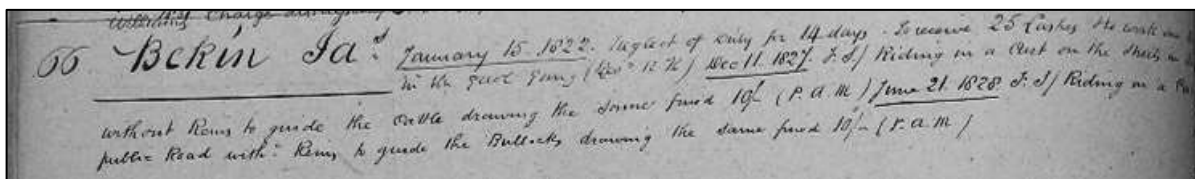 William Charge
66 Bekin Jas. January 15. 1822. Neglect of duty for 14 days. To receive 25 Lashes & to work in
in the gaol Gang (Revd. R K) Decr 11. 1827. F. S/ Riding in a Cart on the Streets
without Reins to guide the Cattle drawing the same fined 10/- (P. A. M) June 21. 1828 F. S/ Riding on a
public Road witht. Reins to guide the Bullocks drawing the same fined 10/- (P. A. M)